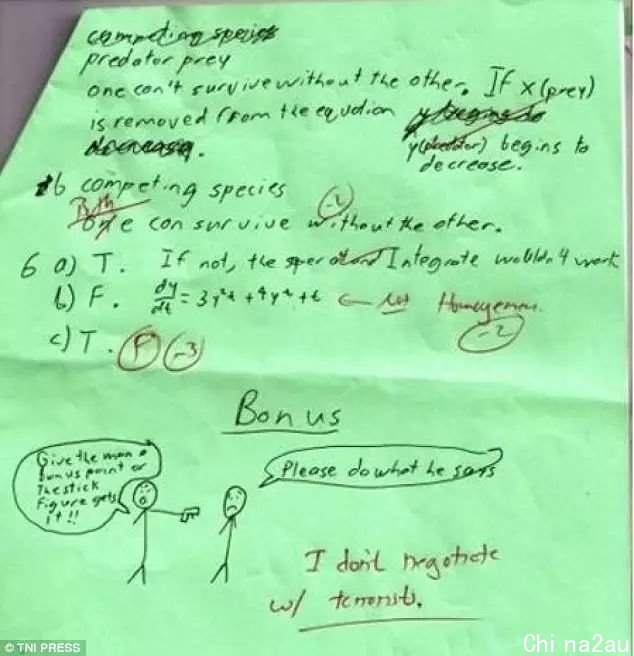 competing species
predator prey
one can't survive without the other. If x (prey)
is removed from the equation y begins to
decrease.
y (predator) begins to
decrease.
1b competing species
Both
one can survive without the other.
-2
6 a) T. If not, the operator Integrate wouldn't work
b) F. dy/dt = 3y²t + 4y⁴ + t ← not
-2
c) T. F -3
Bonus
Give the man a
bonus point or
the stick
figure gets
it!!
Please do what he says
I don't negotiate
w/ terrorists.
© TNI PRESS
China2au